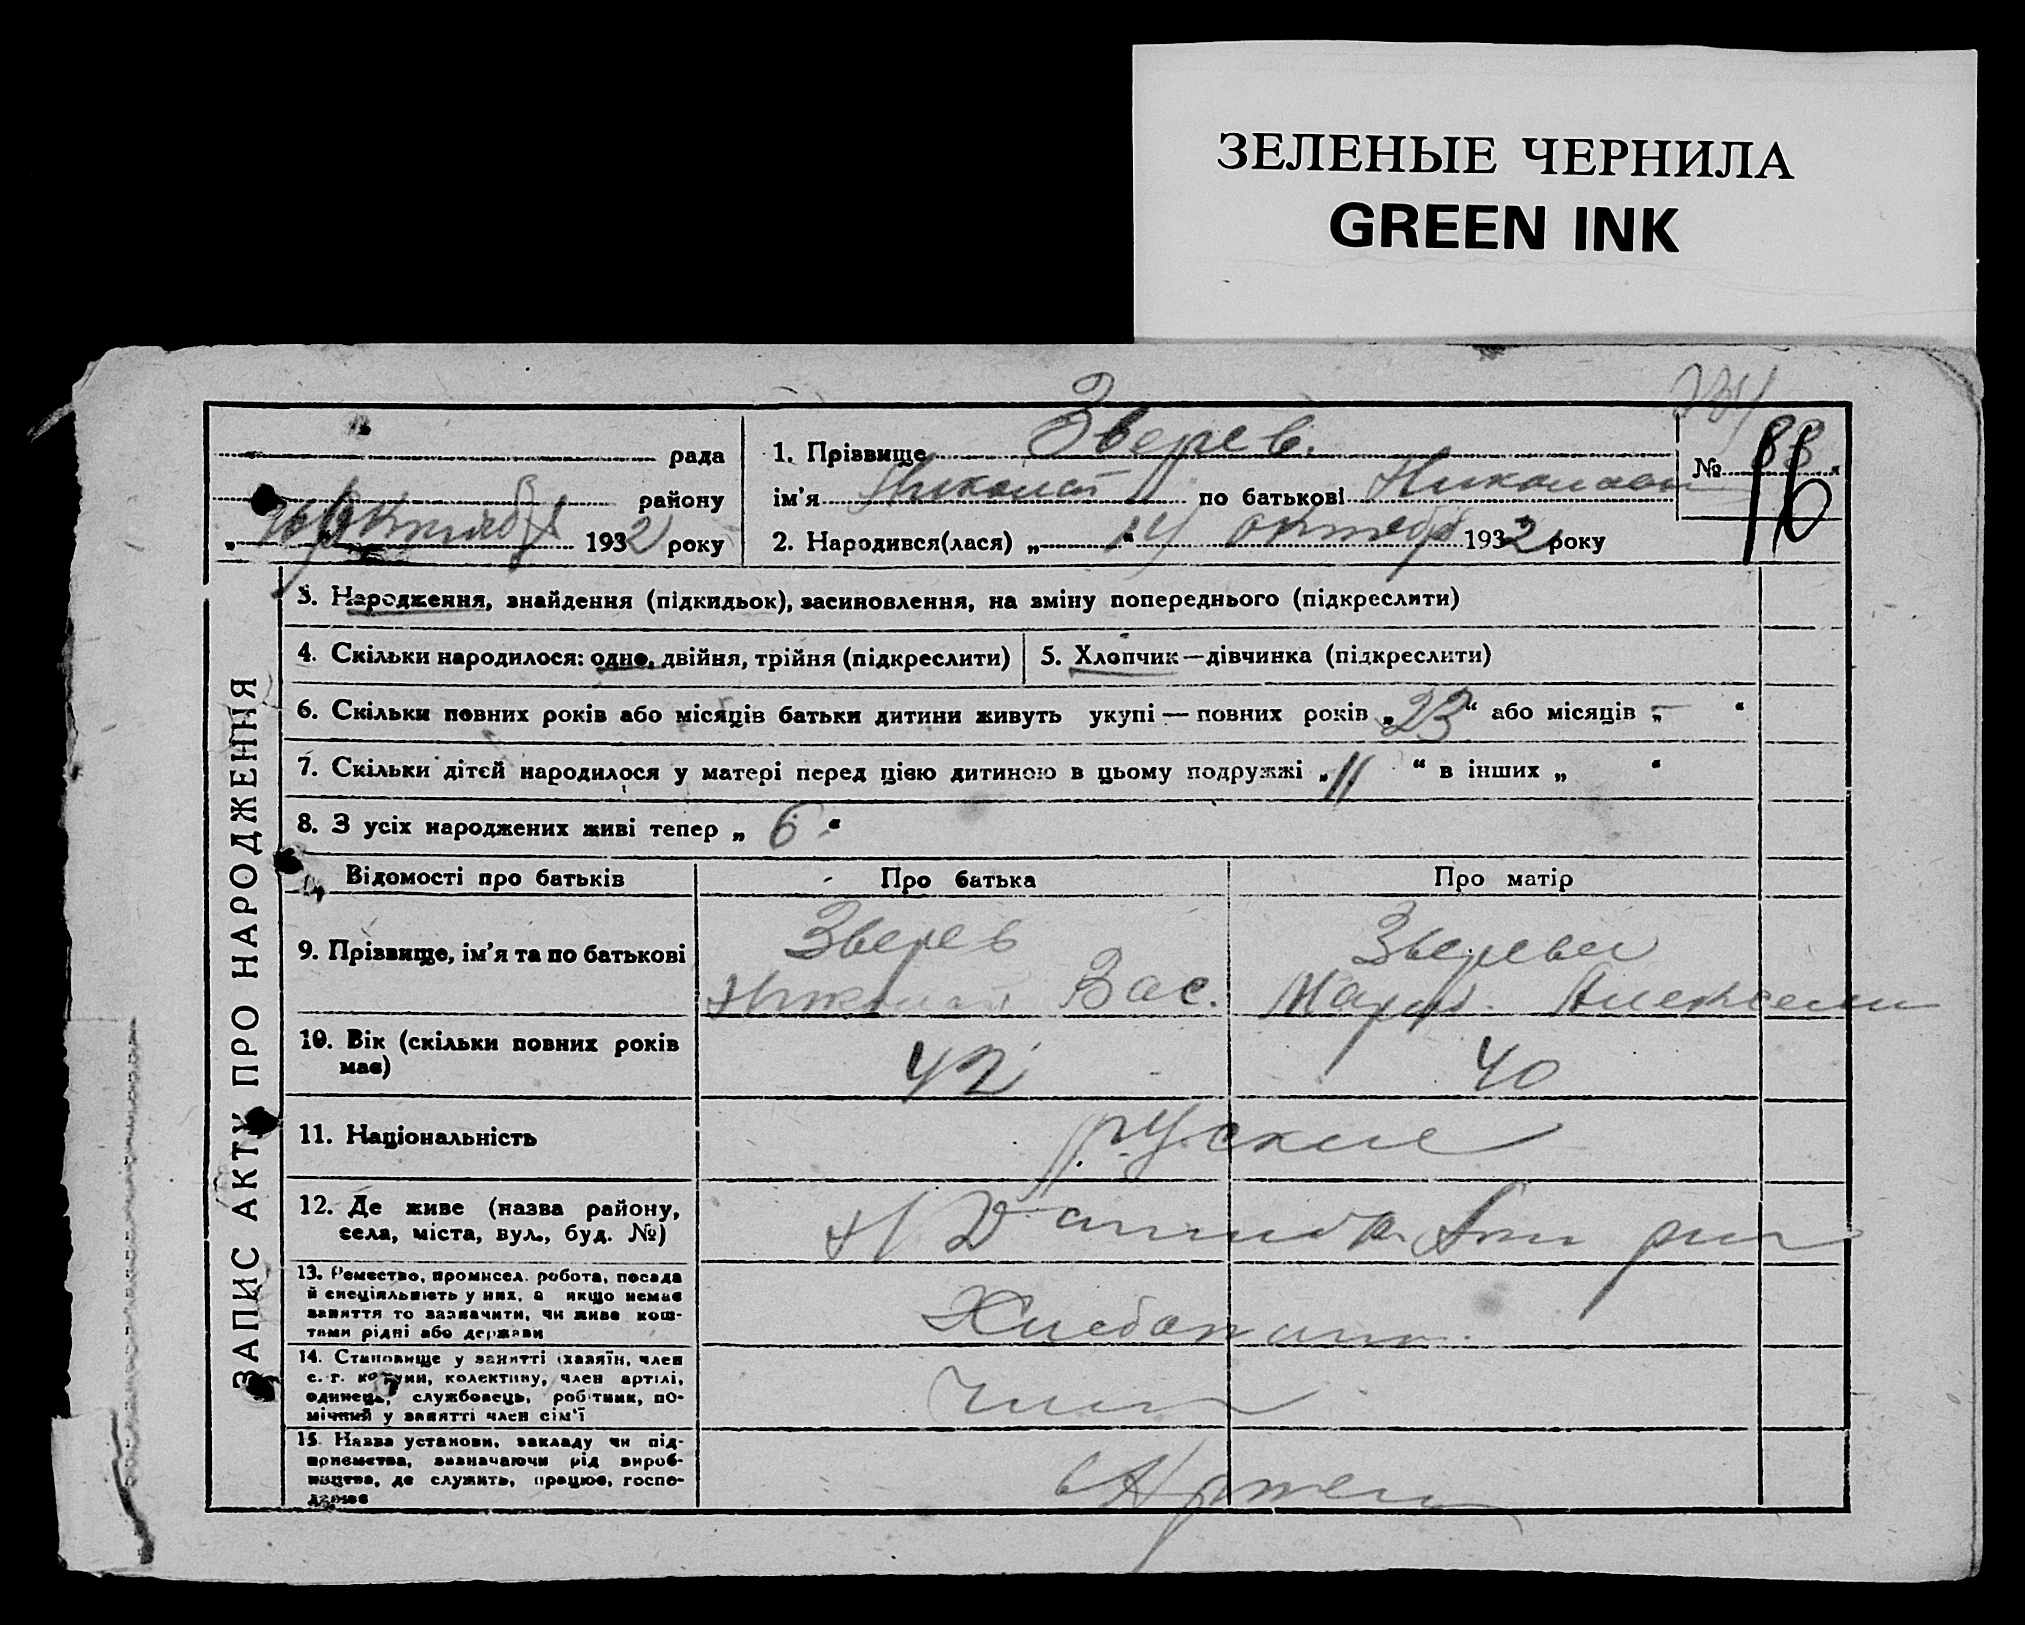 ЗЕЛЕНЫЕ ЧЕРНИЛА
GREEN INK
рада
району
Октября 1932 року
1. Прізвище Зверев.
ім'я Николай по батькові
2. Народився(лася) „14“ октяб 1932 року
№ 88
16
ЗАПИС АКТУ ПРО НАРОДЖЕННЯ
3. Народження, знайдення (підкидьок), засиновлення, на зміну попереднього (підкреслити)
4. Скільки народилося: одне, двійня, трійня (підкреслити)
5. Хлопчик—дівчинка (підкреслити)
6. Скільки повних років або місяців батьки дитини живуть укупі — повних років „23“ або місяців „–“
7. Скільки дітей народилося у матері перед цією дитиною в цьому подружжі „11“ в інших „ “
8. З усіх народжених живі тепер „6“
Відомості про батьків
Про батька
Про матір
9. Прізвище, ім'я та по батькові
Зверев
Николай Вас.
Зверева
10. Вік (скільки повних років має)
42
40
11. Національність
руские
12. Де живе (назва району, села, міста, вул., буд. №)
13. Ремество, промисел. робота, посада й спеціяльність у них, а якщо немає заняття то зазначити, чи живе коштами рідні або держави
14. Становище у занятті (хазяїн, член с.-г. комуни, колективу, член артілі, одинець, службовець, робітник, помічний у занятті член сім'ї
15. Назва установи, закладу чи підприємства, зазначаючи рід виробництва, де служить, працює, господарює